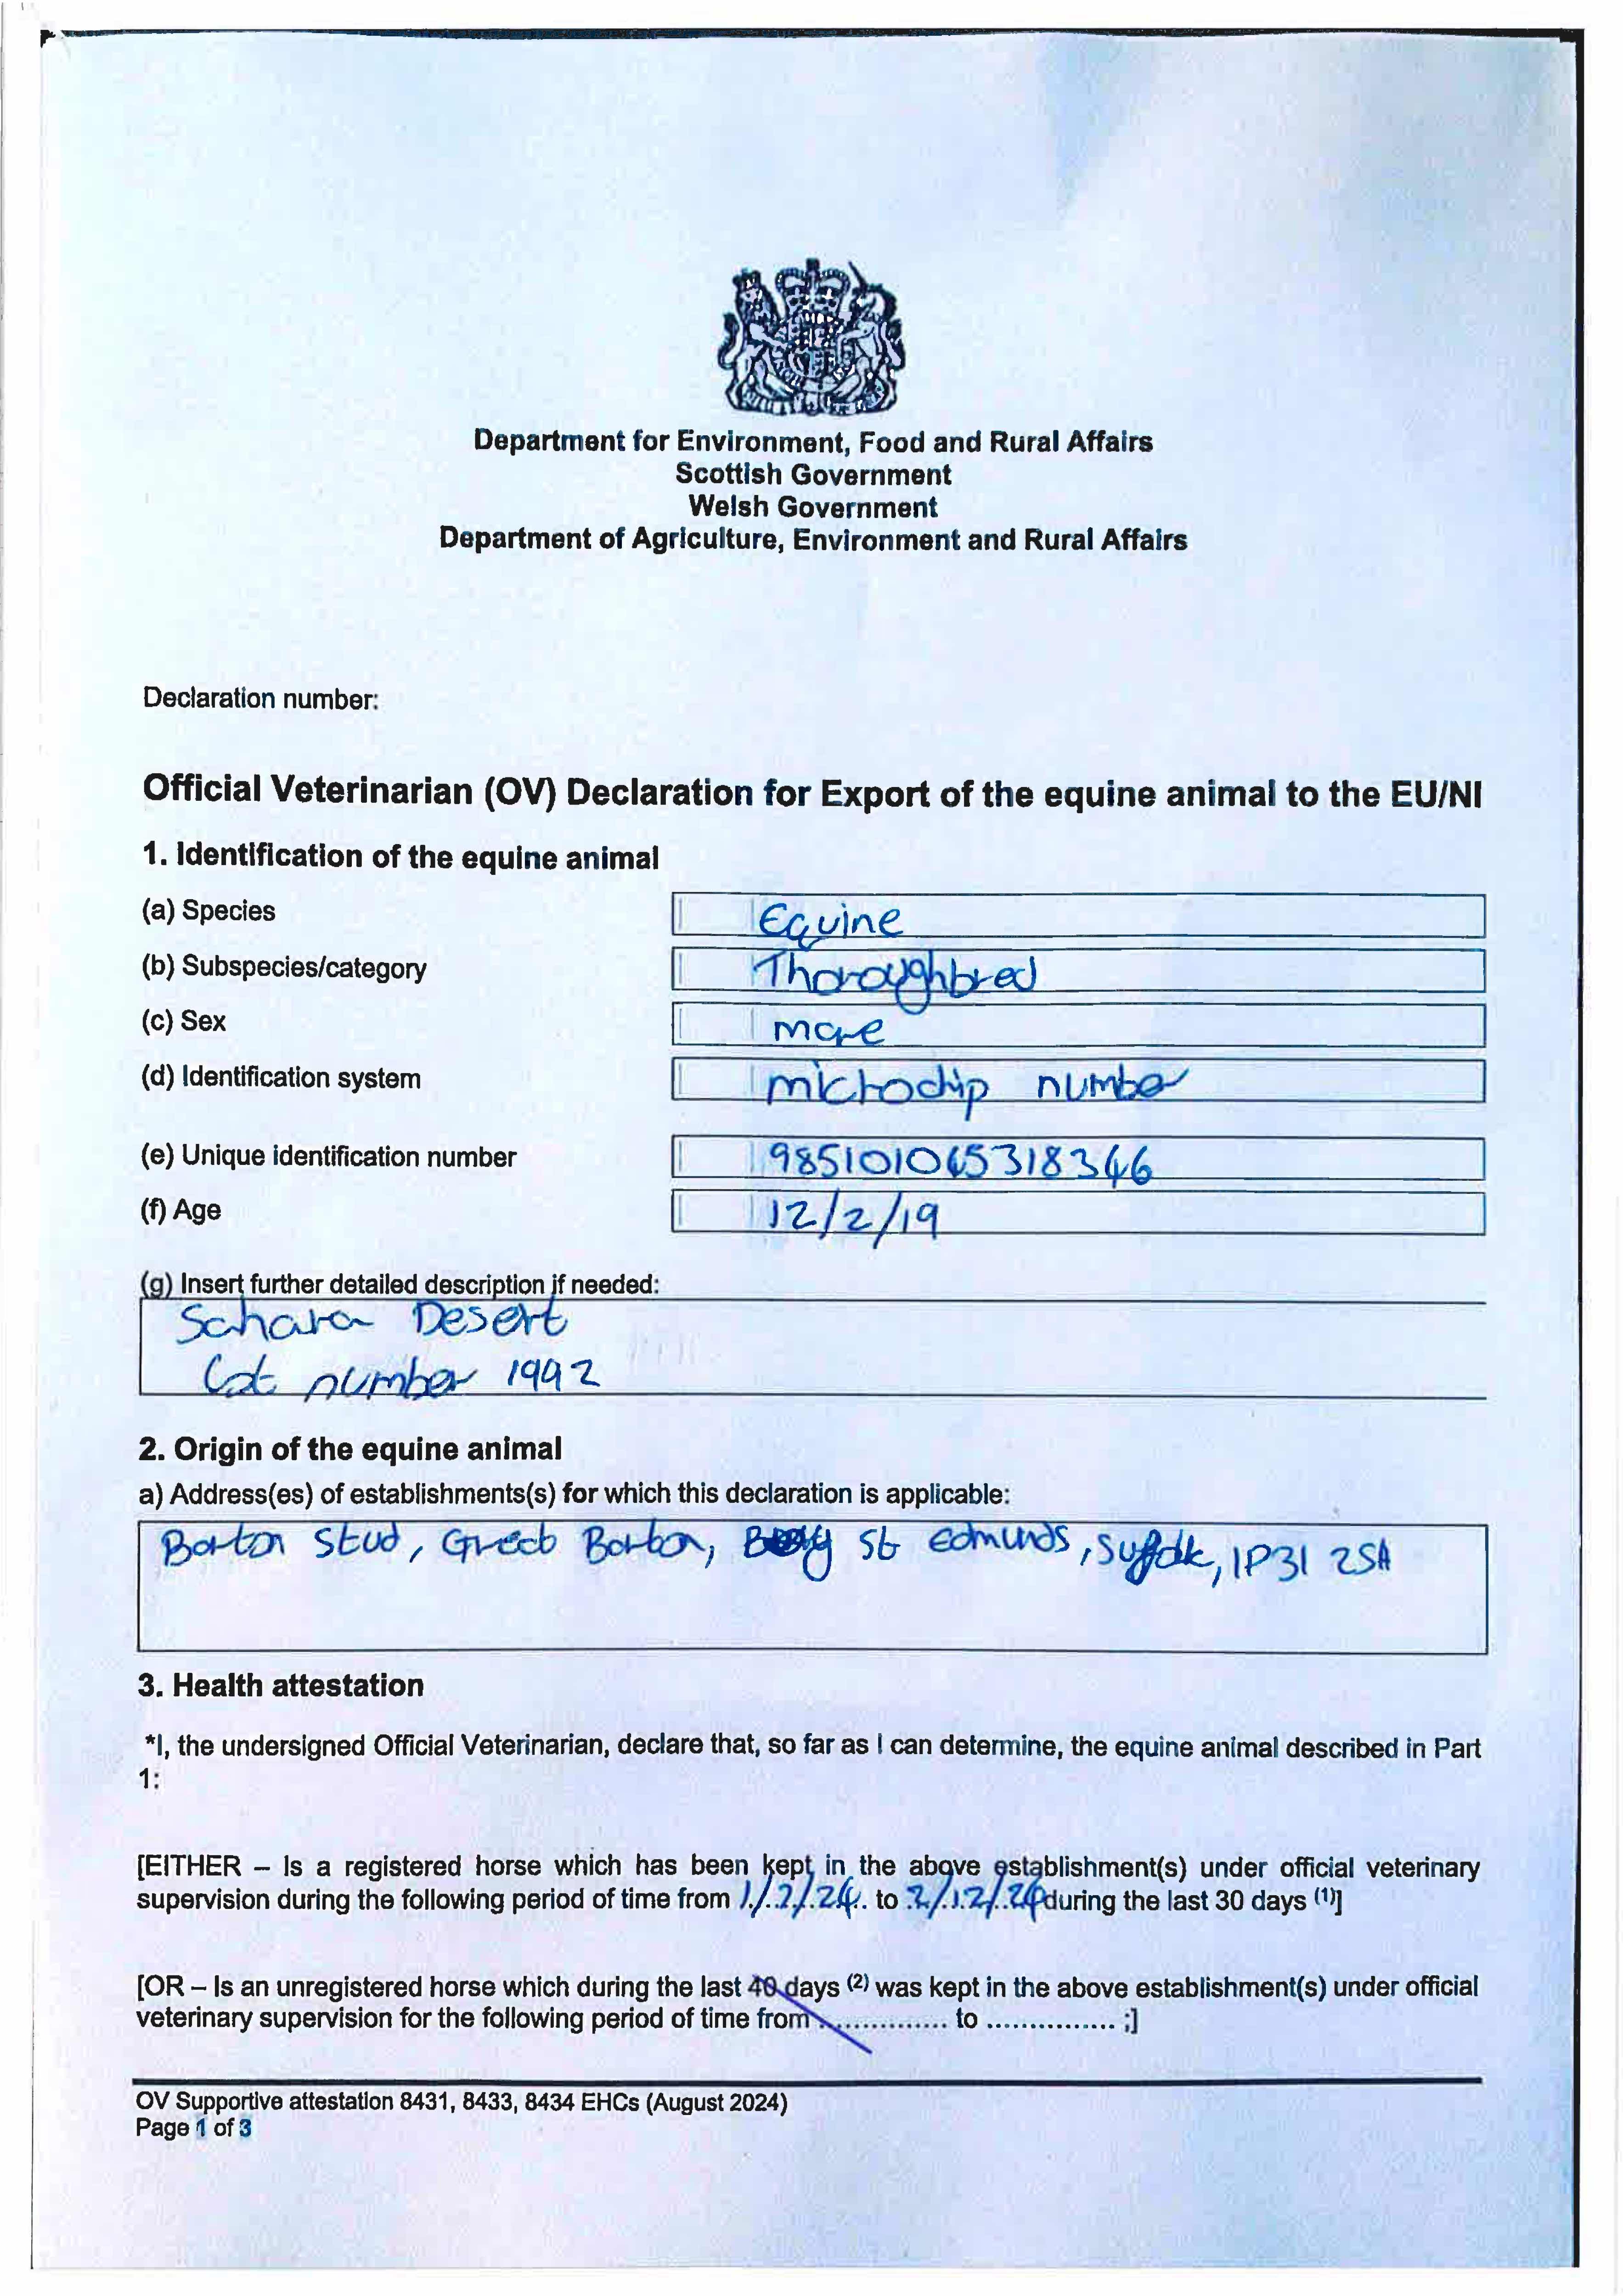 Department for Environment, Food and Rural Affairs
Scottish Government
Welsh Government
Department of Agriculture, Environment and Rural Affairs
Declaration number:
Official Veterinarian (OV) Declaration for Export of the equine animal to the EU/NI
1. Identification of the equine animal
(a) Species Equine
(b) Subspecies/category Thoroughbred
(c) Sex mare
(d) Identification system microchip number
(e) Unique identification number 985101065318346
(f) Age 12/2/19
(g) Insert further detailed description if needed:
Sahara Desert
Cat number 1992
2. Origin of the equine animal
a) Address(es) of establishments(s) for which this declaration is applicable:
Barton Stud, Great Barton, Bury St Edmunds, Suffolk, IP31 2SA
3. Health attestation
*I, the undersigned Official Veterinarian, declare that, so far as I can determine, the equine animal described in Part
1:
[EITHER – Is a registered horse which has been kept in the above establishment(s) under official veterinary
supervision during the following period of time from 1/2/24 to 2/12/24 during the last 30 days (1)]
[OR – Is an unregistered horse which during the last 40 days (2) was kept in the above establishment(s) under official
veterinary supervision for the following period of time from .............. to ............... ;]
OV Supportive attestation 8431, 8433, 8434 EHCs (August 2024)
Page 1 of 3